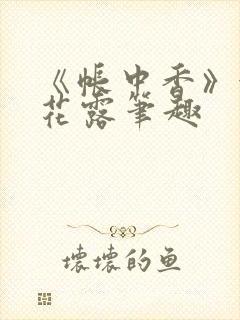 《帐中香》
花露笔趣
坏坏的鱼